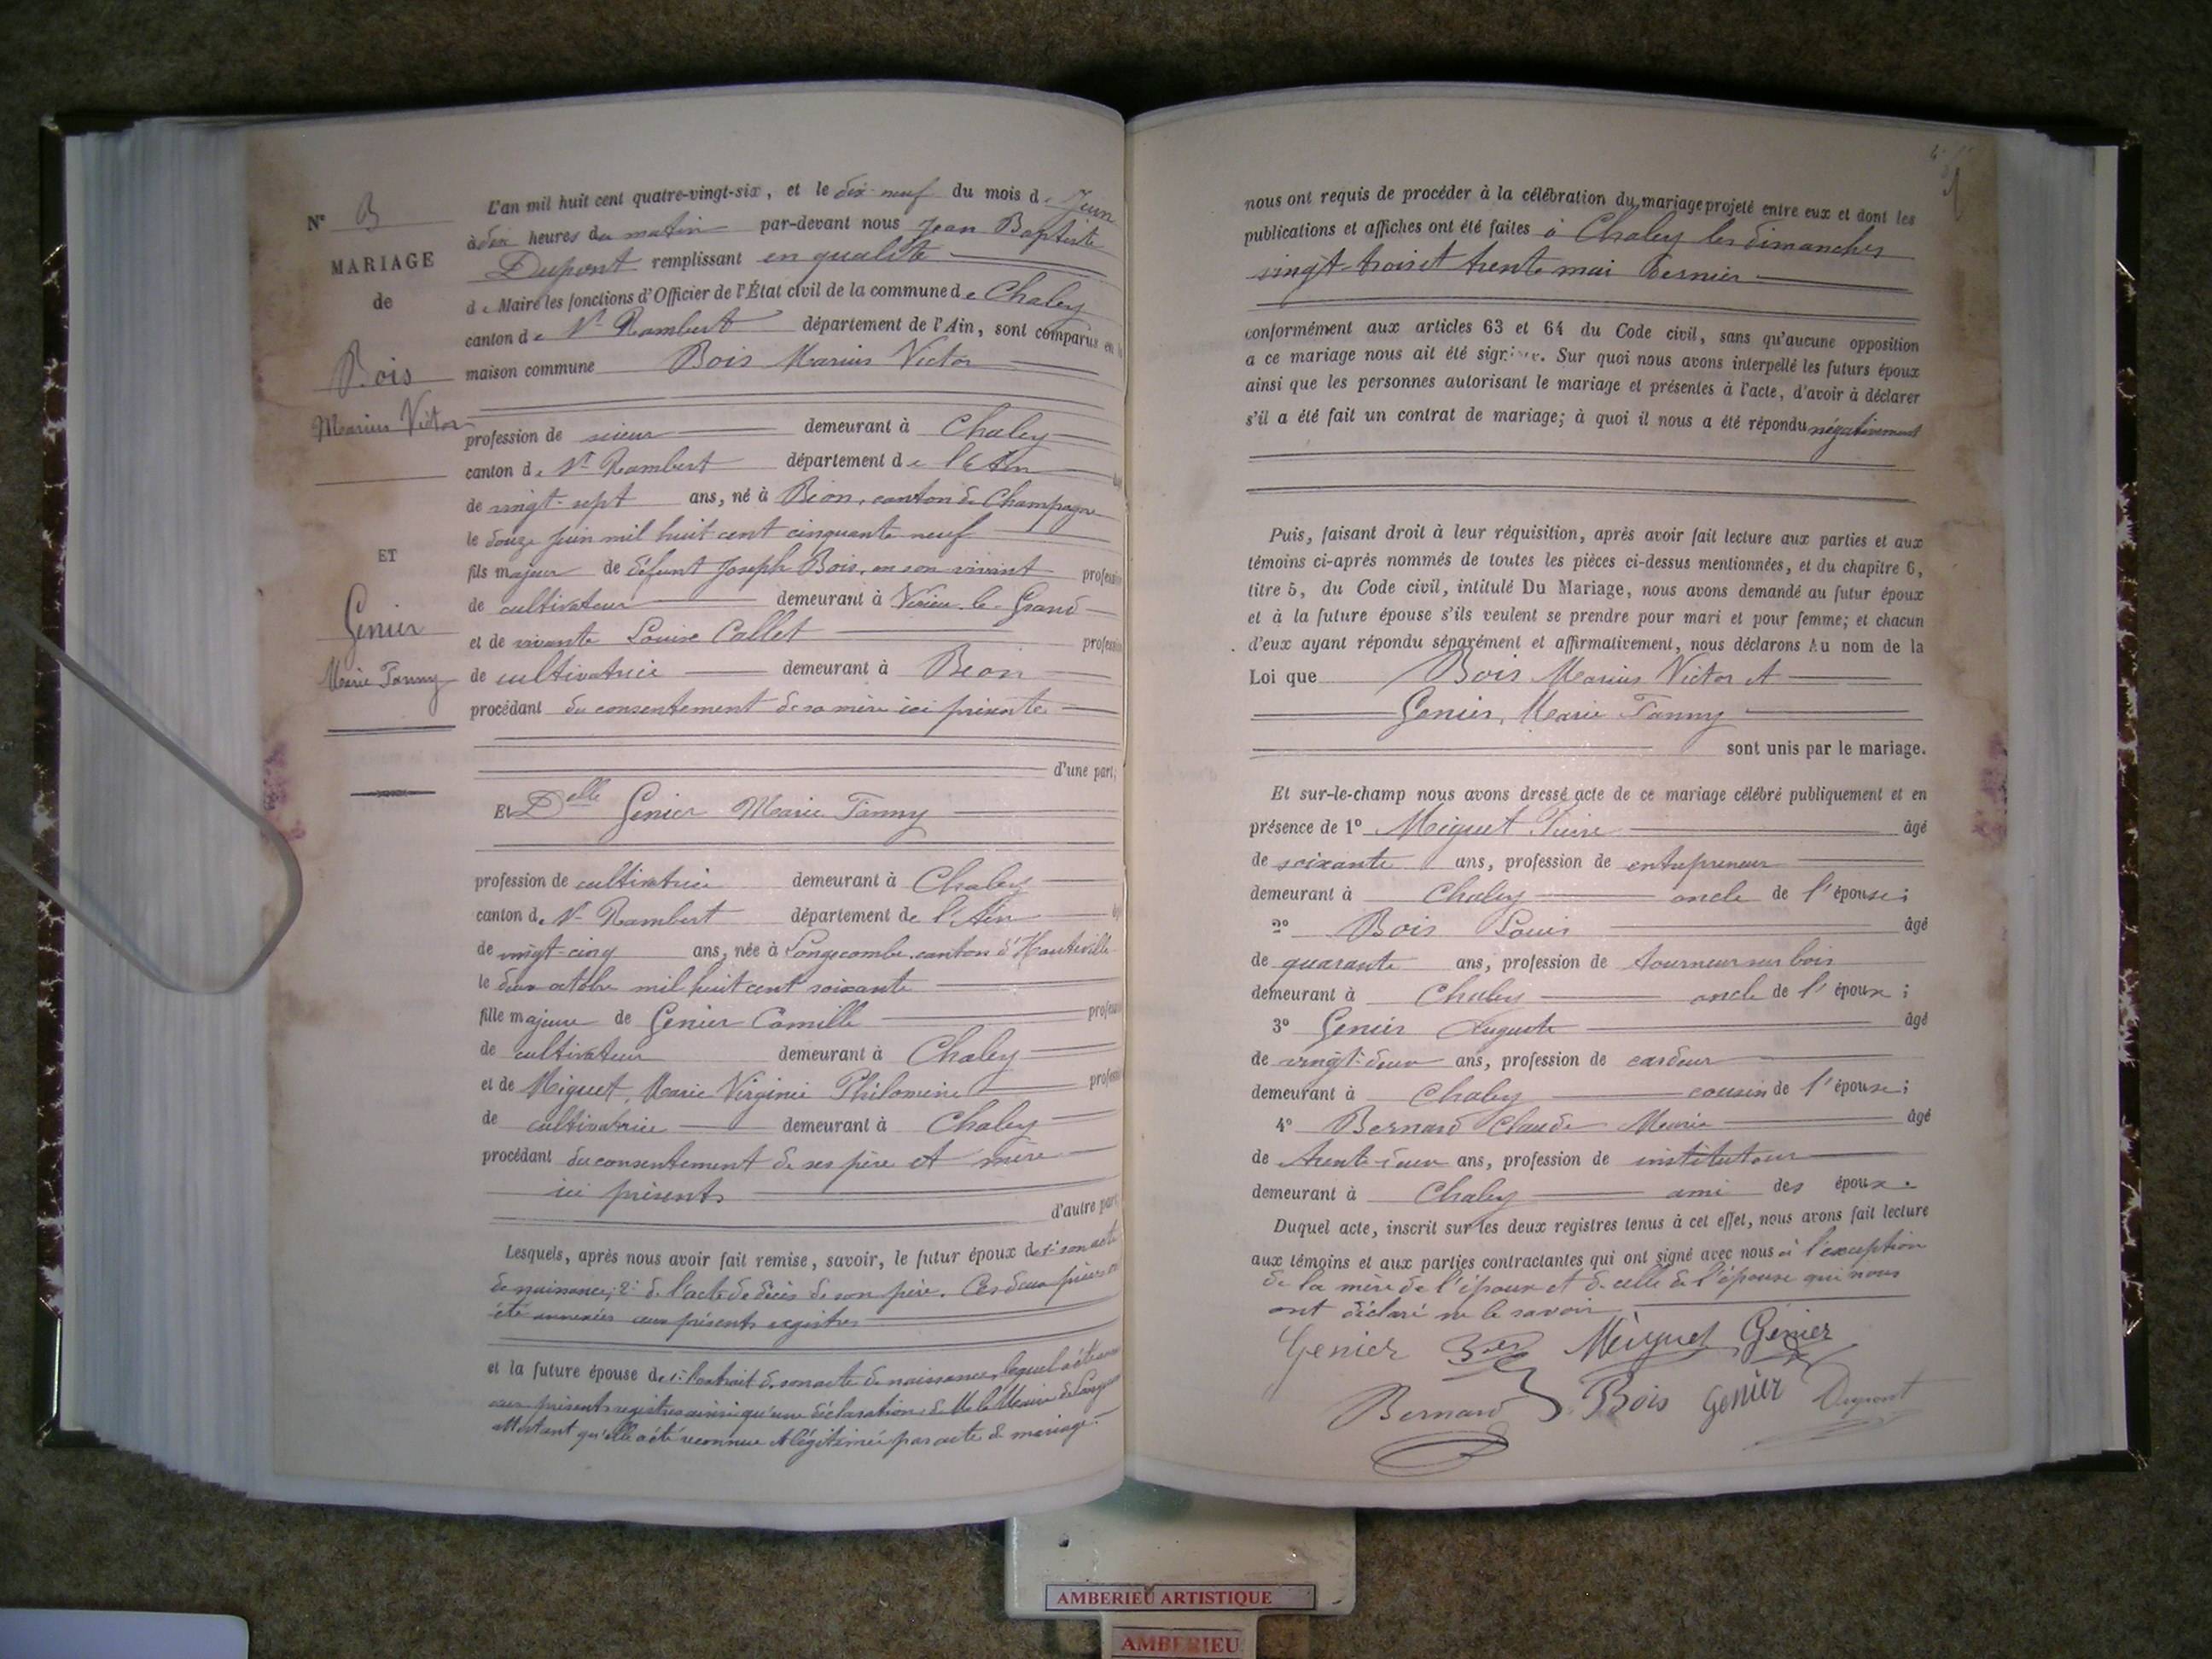 N° 3
MARIAGE
de
Bois
Marius Victor
ET
Genier
Marie Fanny
L'an mil huit cent quatre-vingt-six, et le dix-neuf du mois de Juin
à dix heures du matin par-devant nous Jean Baptiste
Dupont remplissant en qualité
de Maire les fonctions d'Officier de l'État civil de la commune de Chaley
canton de St Rambert département de l'Ain, sont comparus en la
maison commune Bois Marius Victor
profession de scieur demeurant à Chaley
canton de St Rambert département de l'Ain
de vingt-sept ans, né à Béon, canton de Champagne
le douze juin mil huit cent cinquante neuf
fils majeur de défunt Joseph Bois, en son vivant profession
de cultivateur demeurant à Virieu-le-Grand
et de vivante Louise Callet profession
de cultivatrice demeurant à Béon
procédant du consentement de sa mère ici présente
d'une part;
Et Delle Genier Marie Fanny
profession de cultivatrice demeurant à Chaley
canton de St Rambert département de l'Ain
de vingt-cinq ans, née à Longecombe, canton d'Hauteville
le deux octobre mil huit cent soixante
fille majeure de Genier Camille profession
de cultivateur demeurant à Chaley
et de Miguet, Marie Virginie Philomine profession
de cultivatrice demeurant à Chaley
procédant du consentement de ses père et mère
ici présents
d'autre part
Lesquels, après nous avoir fait remise, savoir, le futur époux de 1° son acte
de naissance; 2° de l'acte de décès de son père. Ces deux pièces ont
été annexées aux présents registres
et la future épouse de 1° l'extrait de son acte de naissance, lequel a été annexé
aux présents registres ainsi qu'une déclaration de M. le Maire de
attestant qu'elle a été reconnue et légitimée par acte de mariage.
nous ont requis de procéder à la célébration du mariage projeté entre eux et dont les
publications et affiches ont été faites à Chaley les dimanches
vingt-trois et trente mai dernier
conformément aux articles 63 et 64 du Code civil, sans qu'aucune opposition
a ce mariage nous ait été signifiée. Sur quoi nous avons interpellé les futurs époux
ainsi que les personnes autorisant le mariage et présentes à l'acte, d'avoir à déclarer
s'il a été fait un contrat de mariage; à quoi il nous a été répondu négativement
Puis, faisant droit à leur réquisition, après avoir fait lecture aux parties et aux
témoins ci-après nommés de toutes les pièces ci-dessus mentionnées, et du chapitre 6,
titre 5, du Code civil, intitulé Du Mariage, nous avons demandé au futur époux
et à la future épouse s'ils veulent se prendre pour mari et pour femme; et chacun
d'eux ayant répondu séparément et affirmativement, nous déclarons Au nom de la
Loi que Bois Marius Victor et
Genier, Marie Fanny
sont unis par le mariage.
Et sur-le-champ nous avons dressé acte de ce mariage célébré publiquement et en
présence de 1° Miguet Pierre âgé
de soixante ans, profession de entrepreneur
demeurant à Chaley oncle de l'épouse;
2° Bois Louis âgé
de quarante ans, profession de tourneur sur bois
demeurant à Chaley oncle de l'époux;
3° Genier Auguste âgé
de vingt-deux ans, profession de cardeur
demeurant à Chaley cousin de l'épouse;
4° Bernard Claude Marie âgé
de trente-deux ans, profession de instituteur
demeurant à Chaley ami des époux.
Duquel acte, inscrit sur les deux registres tenus à cet effet, nous avons fait lecture
aux témoins et aux parties contractantes qui ont signé avec nous à l'exception
de la mère de l'époux et de celle de l'épouse qui nous
ont déclaré ne le savoir
Genier Bois Miguet Genier
Bernard Bois Genier Dupont
AMBERIEU ARTISTIQUE
AMBERIEU